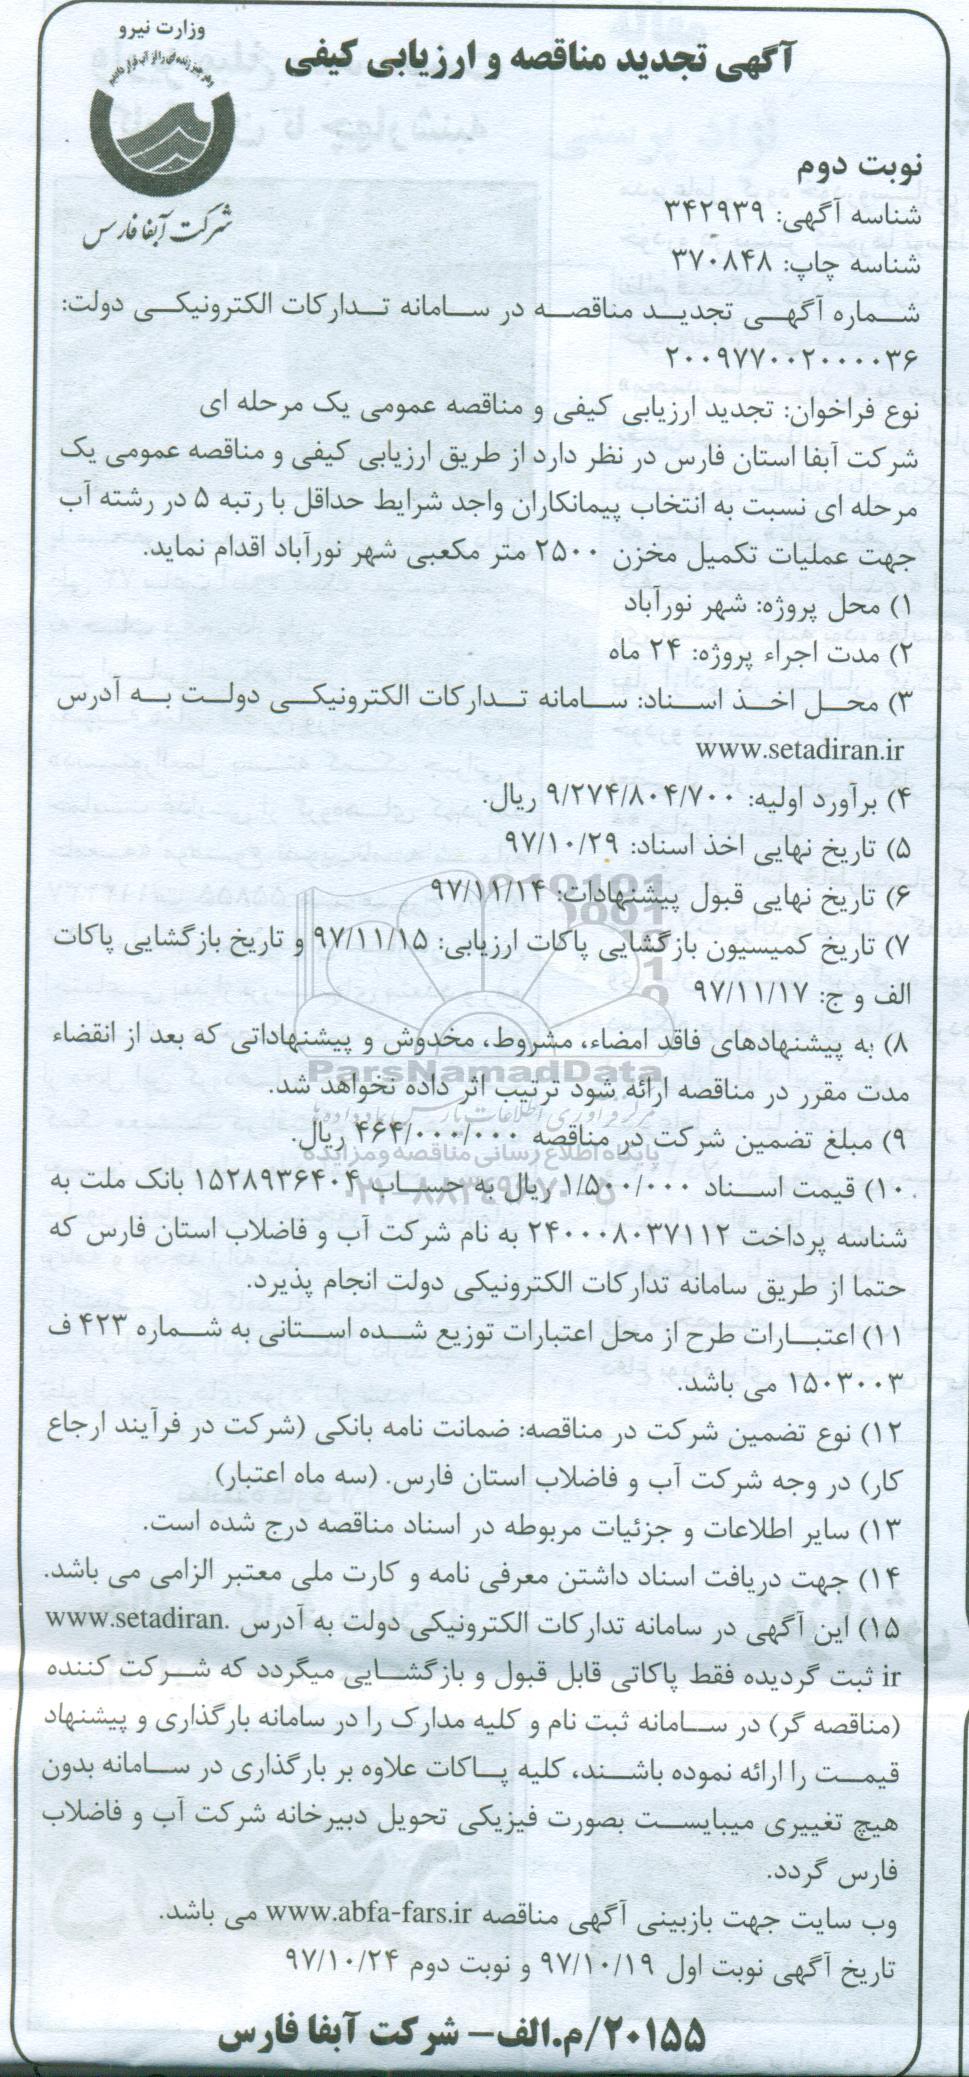 وزارت نیرو
آگهی تجدید مناقصه و ارزیابی کیفی
شرکت آبفا فارس
نوبت دوم
شناسه آگهی: ۳۴۲۹۳۹
شناسه چاپ: ۳۷۰۸۴۸
شماره آگهی تجدید مناقصه در سامانه تدارکات الکترونیکی دولت:
۲۰۰۹۷۷۰۰۲۰۰۰۰۳۶
نوع فراخوان: تجدید ارزیابی کیفی و مناقصه عمومی یک مرحله ای
شرکت آبفا استان فارس در نظر دارد از طریق ارزیابی کیفی و مناقصه عمومی یک
مرحله ای نسبت به انتخاب پیمانکاران واجد شرایط حداقل با رتبه ۵ در رشته آب
جهت عملیات تکمیل مخزن ۲۵۰۰ متر مکعبی شهر نورآباد اقدام نماید.
۱) محل پروژه: شهر نورآباد
۲) مدت اجراء پروژه: ۲۴ ماه
۳) محل اخذ اسناد: سامانه تدارکات الکترونیکی دولت به آدرس
www.setadiran.ir
۴) برآورد اولیه: ۹/۲۷۴/۸۰۴/۷۰۰ ریال.
۵) تاریخ نهایی اخذ اسناد: ۹۷/۱۰/۲۹
۶) تاریخ نهایی قبول پیشنهادات: ۹۷/۱۱/۱۴
۷) تاریخ کمیسیون بازگشایی پاکات ارزیابی: ۹۷/۱۱/۱۵ و تاریخ بازگشایی پاکات
الف و ج: ۹۷/۱۱/۱۷
۸) به پیشنهادهای فاقد امضاء، مشروط، مخدوش و پیشنهاداتی که بعد از انقضاء
ParsNamadData
مدت مقرر در مناقصه ارائه شود ترتیب اثر داده نخواهد شد.
مرکز فرآوری اطلاعات پارس نماد داده ها
۹) مبلغ تضمین شرکت در مناقصه ۴۶۴/۰۰۰/۰۰۰ ریال.
پایگاه اطلاع رسانی مناقصه و مزایده
۱۰) قیمت اسناد ۱/۵۰۰/۰۰۰ ریال به حساب ۱۵۲۸۹۳۶۴۰۴ بانک ملت به
شناسه پرداخت ۲۴۰۰۰۸۰۳۷۱۱۲ به نام شرکت آب و فاضلاب استان فارس که
حتما از طریق سامانه تدارکات الکترونیکی دولت انجام پذیرد.
۱۱) اعتبارات طرح از محل اعتبارات توزیع شده استانی به شماره ۴۲۳ ف
۱۵۰۳۰۰۳ می باشد.
۱۲) نوع تضمین شرکت در مناقصه: ضمانت نامه بانکی (شرکت در فرآیند ارجاع
کار) در وجه شرکت آب و فاضلاب استان فارس. (سه ماه اعتبار)
۱۳) سایر اطلاعات و جزئیات مربوطه در اسناد مناقصه درج شده است.
۱۴) جهت دریافت اسناد داشتن معرفی نامه و کارت ملی معتبر الزامی می باشد.
۱۵) این آگهی در سامانه تدارکات الکترونیکی دولت به آدرس www.setadiran.
ir ثبت گردیده فقط پاکاتی قابل قبول و بازگشایی میگردد که شرکت کننده
(مناقصه گر) در سامانه ثبت نام و کلیه مدارک را در سامانه بارگذاری و پیشنهاد
قیمت را ارائه نموده باشند، کلیه پاکات علاوه بر بارگذاری در سامانه بدون
هیچ تغییری میبایست بصورت فیزیکی تحویل دبیرخانه شرکت آب و فاضلاب
فارس گردد.
وب سایت جهت بازبینی آگهی مناقصه www.abfa-fars.ir می باشد.
تاریخ آگهی نوبت اول ۹۷/۱۰/۱۹ و نوبت دوم ۹۷/۱۰/۲۴
۲۰۱۵۵/م.الف- شرکت آبفا فارس